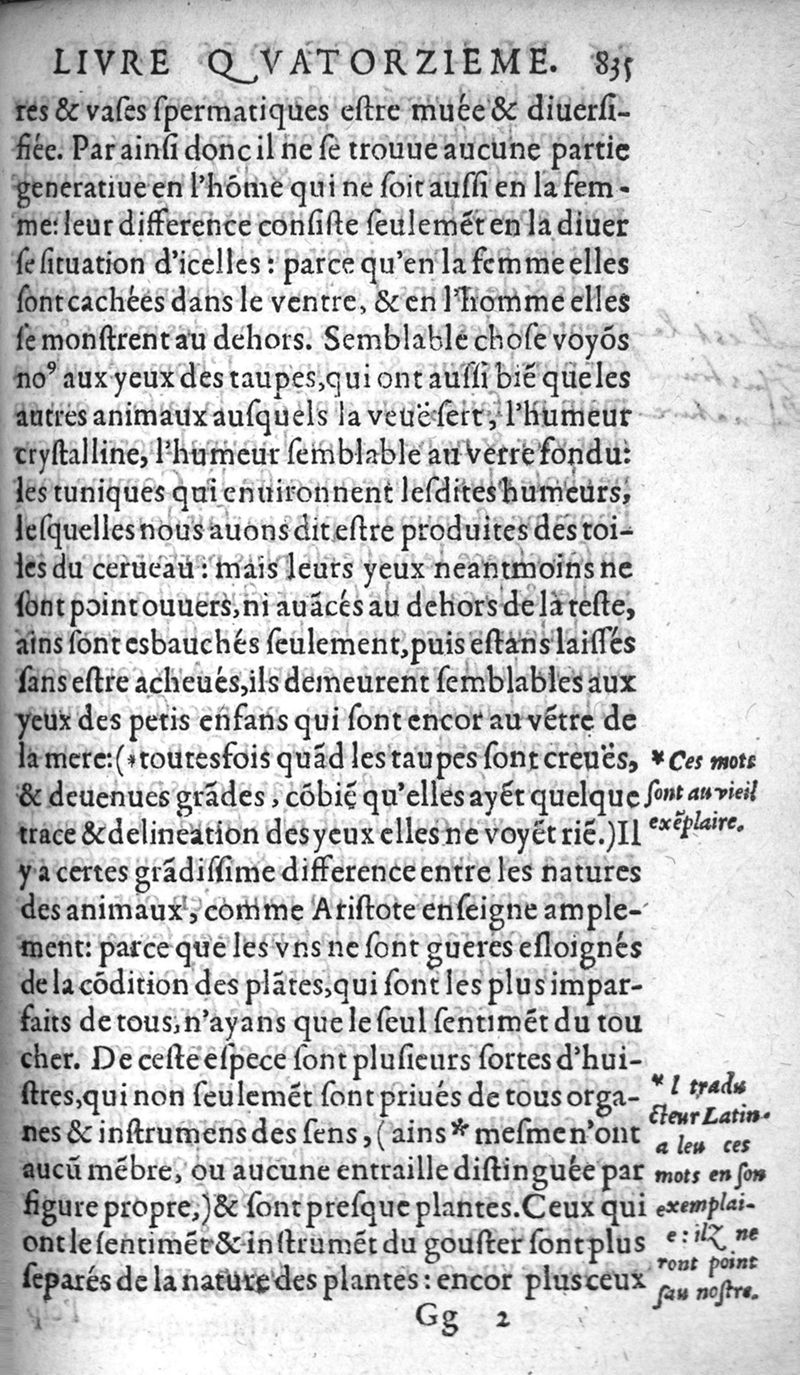 LIVRE QVATORZIEME. 835
res & vaſes ſpermatiques eſtre muée & diuerſi-
fiée. Par ainſi donc il ne ſe trouue aucune partie
generatiue en l'hõme qui ne ſoit auſſi en la fem-
me: leur difference conſiſte ſeulemẽt en la diuer
ſe ſituation d'icelles : parce qu'en la femme elles
ſont cachées dans le ventre, & en l'homme elles
ſe monſtrent au dehors. Semblable choſe voyõs
noꝰ aux yeux des taupes, qui ont auſſi biẽ que les
autres animaux auſquels la veuë ſert, l'humeur
cryſtalline, l'humeur ſemblable au verre fondu:
les tuniques qui enuironnent leſdites humeurs,
leſquelles nous auons dit eſtre produites des toi-
les du cerueau : mais leurs yeux neantmoins ne
ſont point ouuers, ni auãcés au dehors de la teſte,
ains ſont esbauchés ſeulement, puis eſtans laiſſés
ſans eſtre acheués, ils demeurent ſemblables aux
yeux des petis enfans qui ſont encor au vẽtre de
la mere: (* toutesfois quãd les taupes ſont creuës,
& deuenues grãdes, cõbiẽ qu'elles ayẽt quelque
trace & delineation des yeux elles ne voyẽt riẽ.) Il
y a certes grãdiſſime difference entre les natures
des animaux, comme Ariſtote enſeigne ample-
ment: parce que les vns ne ſont gueres eſloignés
de la cõdition des plãtes, qui ſont les plus impar-
faits de tous, n'ayans que le ſeul ſentimẽt du tou
cher. De ceſte eſpece ſont pluſieurs ſortes d'hui-
ſtres, qui non ſeulemẽt ſont priués de tous orga-
nes & inſtrumens des ſens, (ains * meſme n'ont
aucũ mẽbre, ou aucune entraille diſtinguée par
figure propre,) & ſont preſque plantes. Ceux qui
ont le ſentimẽt & inſtrumẽt du gouſter ſont plus
ſeparés de la nature des plantes : encor plus ceux
Gg 2
* Ces mots
ſont au vieil
exẽplaire.
* l tradu
cteur Latin
a leu ces
mots en ſon
exemplai-
e : ilz ne
ront point
ſau noſtre.